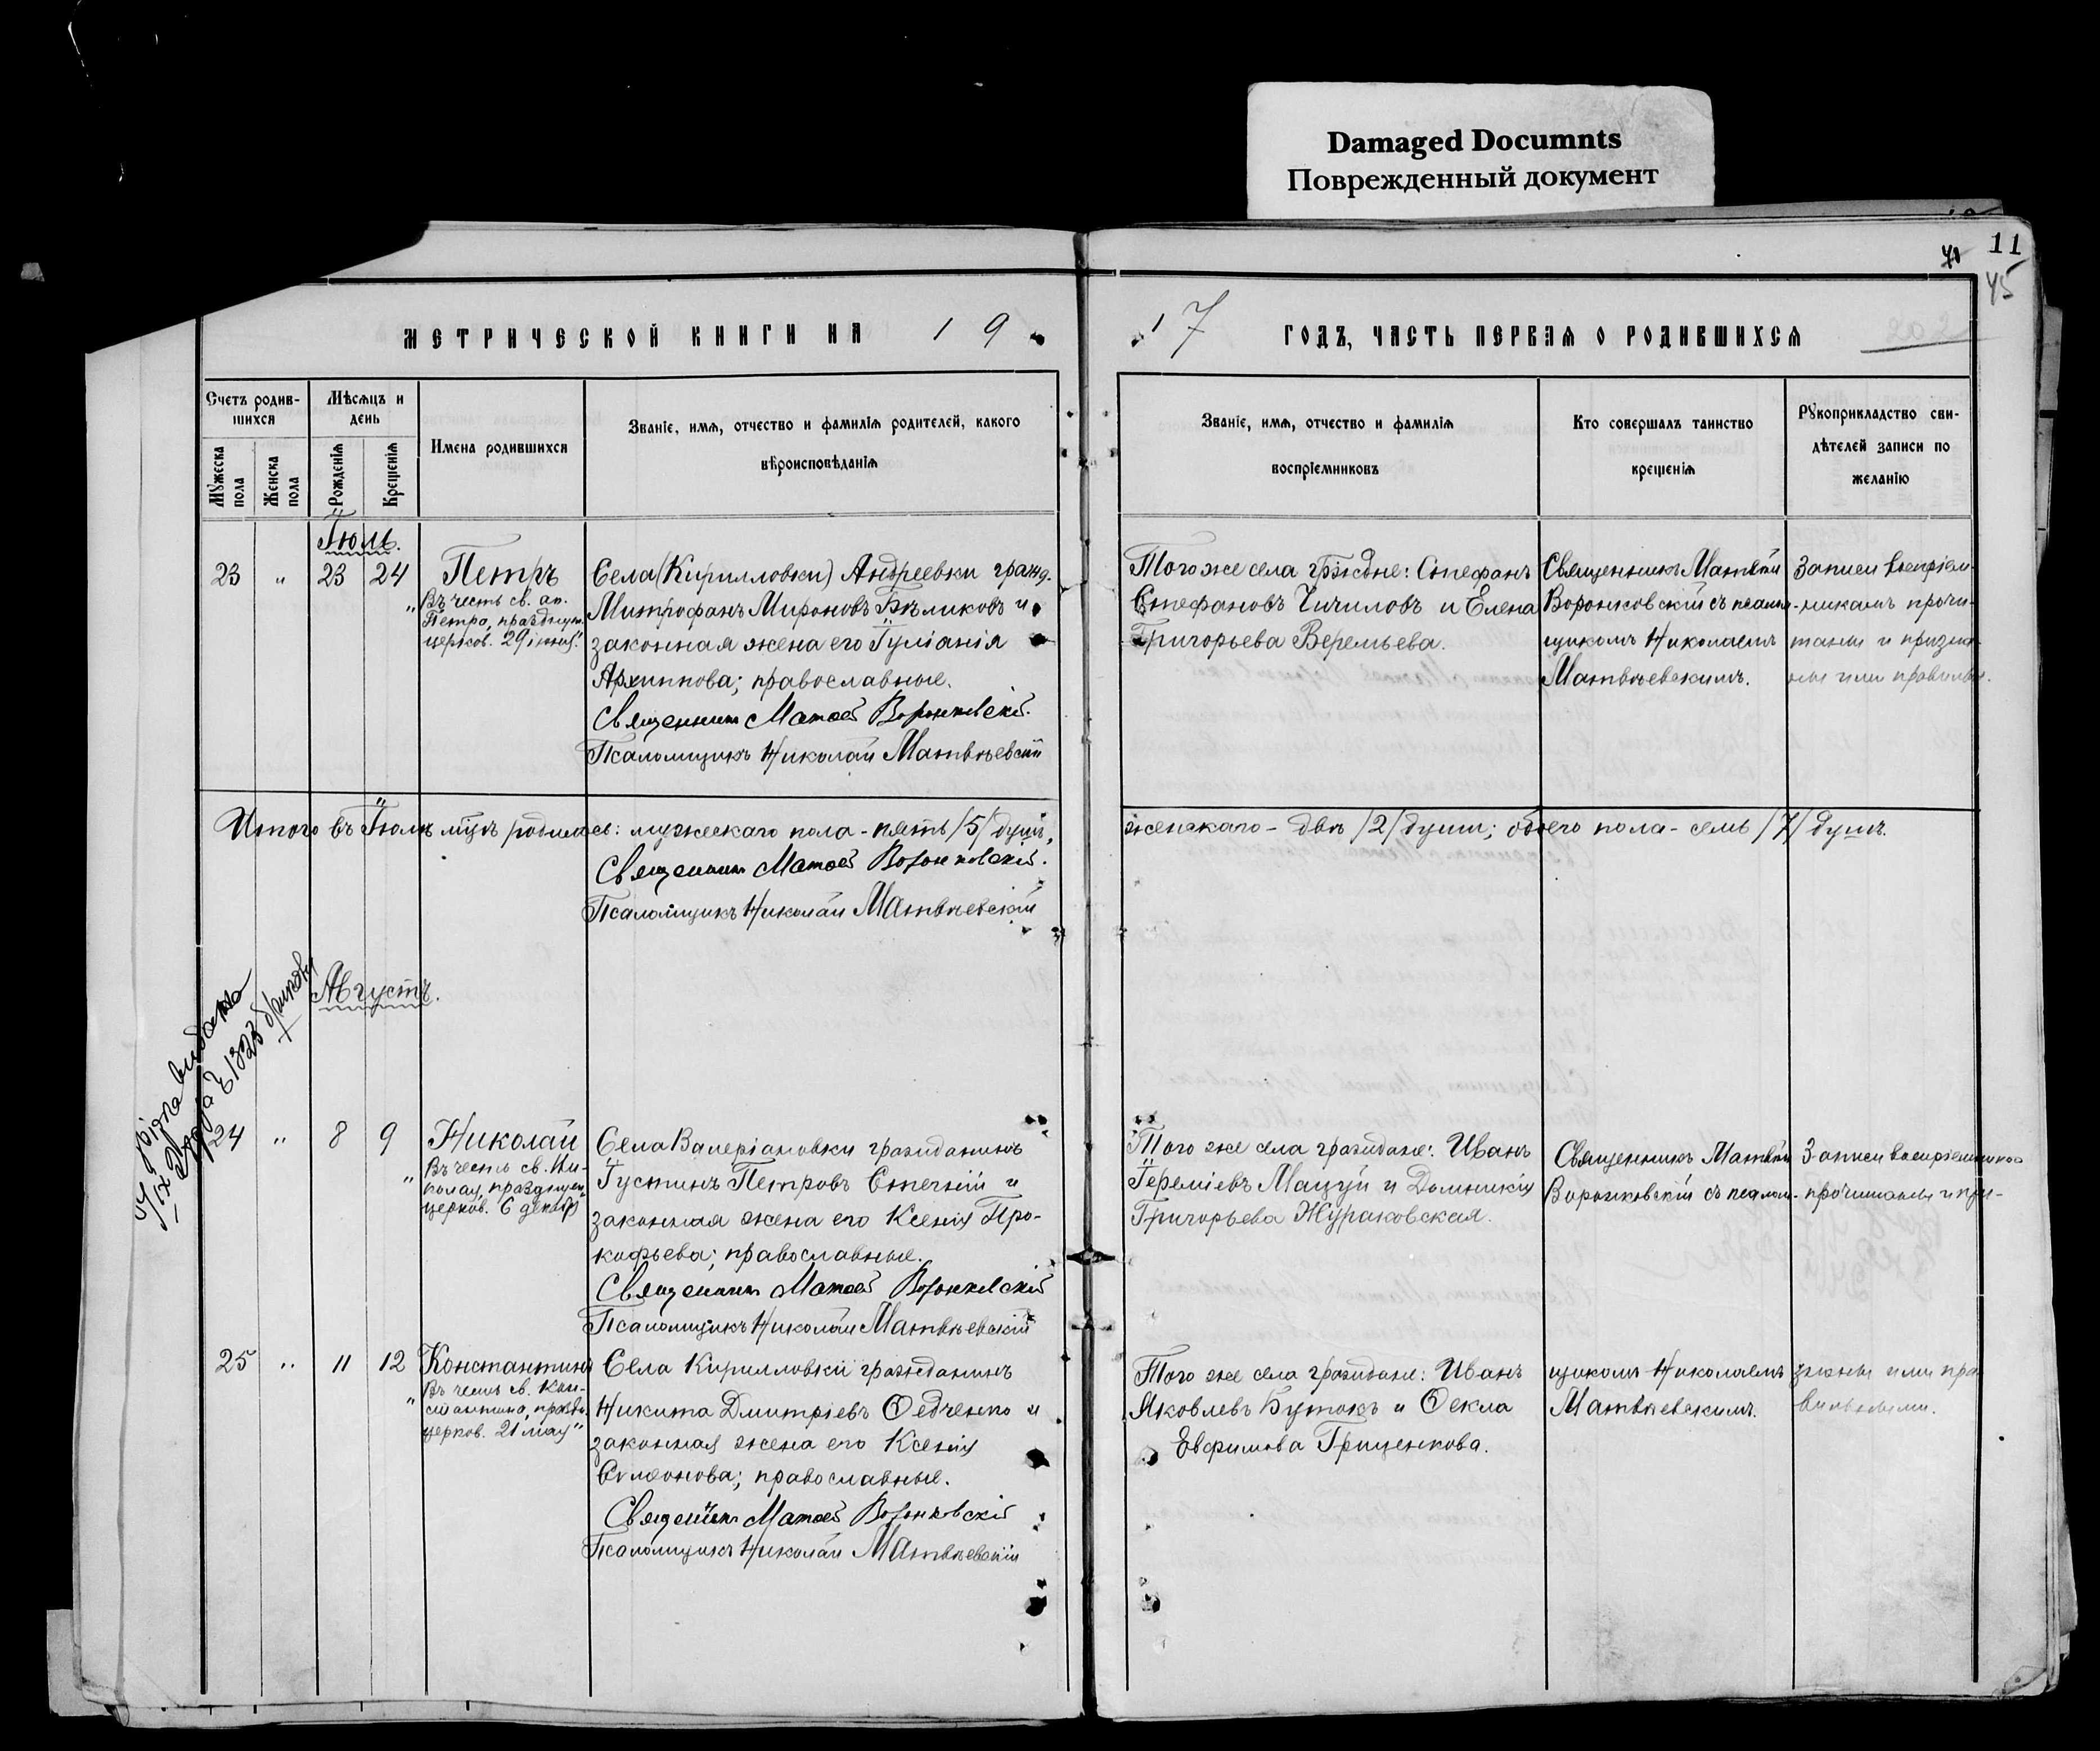 Damaged Documnts
Поврежденный документ
11
45
МЕТРИЧЕСКОЙ КНИГИ НА 19
17 ГОДЪ, ЧАСТЬ ПЕРВАЯ О РОДИВШИХСЯ
Счетъ родив-
шихся
Мѣсяцъ и
день
Мужеска пола
Женска пола
Рожденія
Крещенія
Имена родившихся
Званіе, имя, отчество и фамилія родителей, какого
вѣроисповѣданія
Званіе, имя, отчество и фамилія
воспріемниковъ
Кто совершалъ таинство
крещенія
Рукоприкладство сви-
дѣтелей записи по
желанію
Іюль.
23 " 23 24
Петръ
"Въ честь св. ап.
Петра, празднуем.
церков. 29 іюня".
Села (Кирилловки) Андреевки гражд.
Митрофанъ Мироновъ Бѣликовъ и
законная жена его Іуліанія
Архиппова; православные.
Священникъ Матѳей Воронковскій.
Псаломщикъ Николай Матвѣевскій
Того же села гражdне: Стефанъ
Стефановъ Чичиловъ и Елена
Григорьева Веремьева.
Священникъ Матвѣй
Воронковскій съ псалом-
щикомъ Николаемъ
Матвѣевскимъ.
Записи воспріем-
никамъ прочи-
таны и призна-
ны ими правильн.
Итого въ Іюлѣ мцѣ родилось: мужескаго пола - пять /5/ душъ,
женскаго - двѣ /2/ души; обоего пола - семь /7/ душъ.
Священникъ Матѳей Воронковскій.
Псаломщикъ Николай Матвѣевскій
Августъ.
24 " 8 9
Николай
"Въ честь св. Ни-
колая, празднуем.
церков. 6 декабр"
Села Валеріановки гражданинъ
Іустинъ Петровъ Стегній и
законная жена его Ксенія Про-
кофьева; православные.
Священникъ Матѳей Воронковскій
Псаломщикъ Николай Матвѣевскій
Того же села граждане: Иванъ
Іереміевъ Мацуй и Домникія
Григорьева Жураковская.
Священникъ Матвѣй
Воронковскій съ псалом-
Записи воспріемникамъ
прочитаны и при-
25 " 11 12
Константинъ
"Въ честь св. Кон-
стантина, праздн.
церков. 21 мая"
Села Кирилловки гражданинъ
Никита Дмитріевъ Ѳедченко и
законная жена его Ксенія
Симеонова; православные.
Священникъ Матѳей Воронковскій
Псаломщикъ Николай Матвѣевскій
Того же села граждане: Иванъ
Яковлевъ Бутокъ и Ѳекла
Евфимова Гриценкова.
щикомъ Николаемъ
Матвѣевскимъ.
знаны ими пра-
вильными.